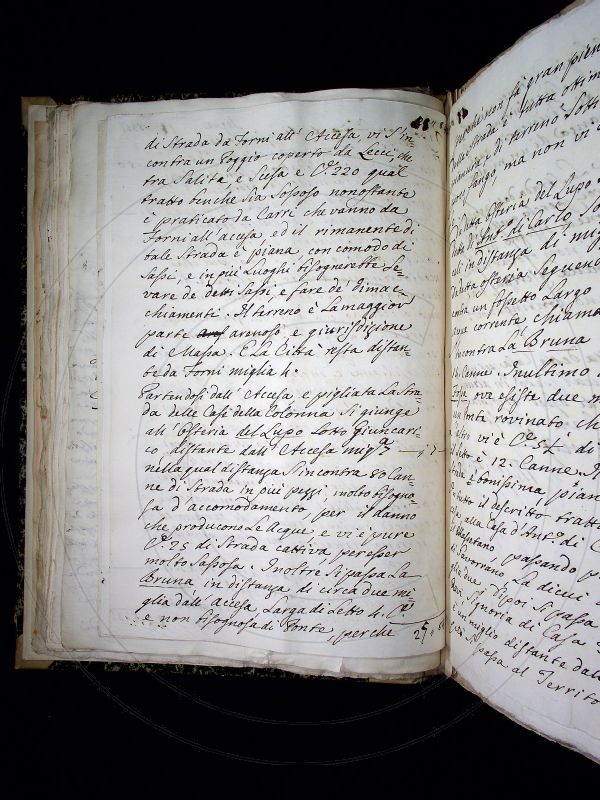 di Strada da Forni all' Accesa vi S'in=
contra un Poggio coperto da Lecci, che
tra Salita, e Scesa e C.e 220 qual
tratto benche sia Sassoso nonostante
è praticato da Carri che vanno da
Forni all' acesa, ed il rimanente di
tale Strada è piana, con comodo di
Sassi, e in più Luoghi bisognerebbe Le=
vare de detti Sassi, e fare de Rimac=
chiamenti. Il terreno è la maggior
parte arenoso e giurisdizione
di Massa. E La Città resta distan=
te da Forni miglia 4.
Partendosi dall' Accesa, e pigliata La Stra=
da delle Case della Colonna Si giunge
all' Osteria del Lupo Sotto Giuncari=
co distante dall' Accesa mig.a 5
nella qual distanza S'incontra 80 Can=
ne di Strada in più pezzi, molto bisogno=
sa d'accomodamento per il danno
che producono Le Acque, e vi è pure
C.e 25 di Strada cattiva per esser
molto Sassosa. Inoltre Si passa La
Bruna in distanza di circa due mi=
glia dall' accesa Larga di Letto 4. C.e
e non bisognosa di Ponte perche
gran piena
della Strada è tutta ottima
e di terreno Sotto
fango, ma non vi
Osteria del Lupo
di Ant. di Carlo
in distanza di mig
osteria Seguendo
contra un fossetto Largo
corrente chiamato
incontra La Bruna
14. Canne. Inultimo
ove esiste due
un Ponte rovinato che
altro vi è C.e 5½
è 12. Canne.
Strada è bonissima piana
tutto il descritto tratto
alla Casa d'Ant.o di C
passando
di Gavorrano. La dicui
dipoi Si passa
Signoria di Casa
un miglio distante dalla
Si passa al Territo